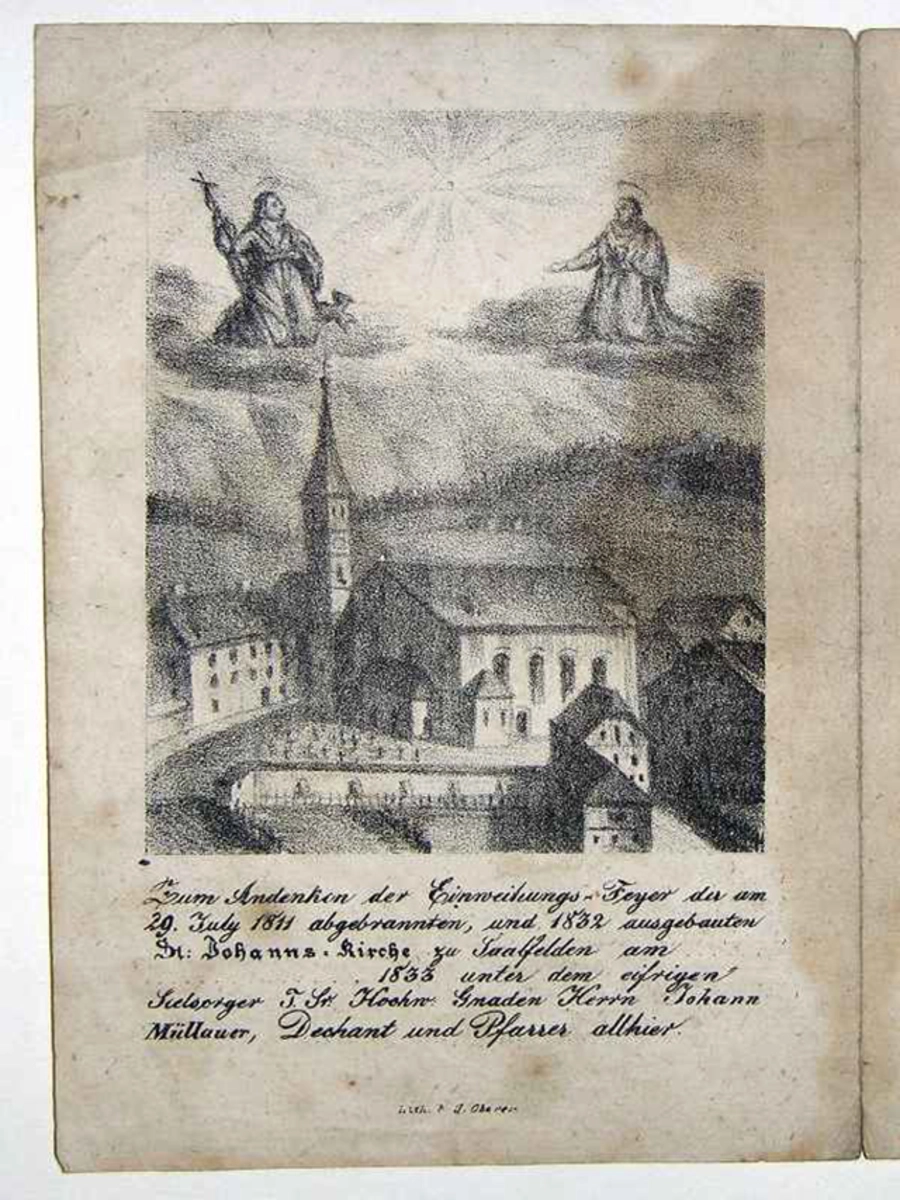 Zum Andenken der Einweihungs-Feyer der am
29. July 1811 abgebrannten, und 1832 ausgebauten
St: Johanns-Kirche zu Saalfelden am
1833 unter dem eifrigen
Seelsorger T. Sr. Hochw. Gnaden Herrn Johann
Müllauer, Dechant und Pfarrer allhier.
Lith. J.